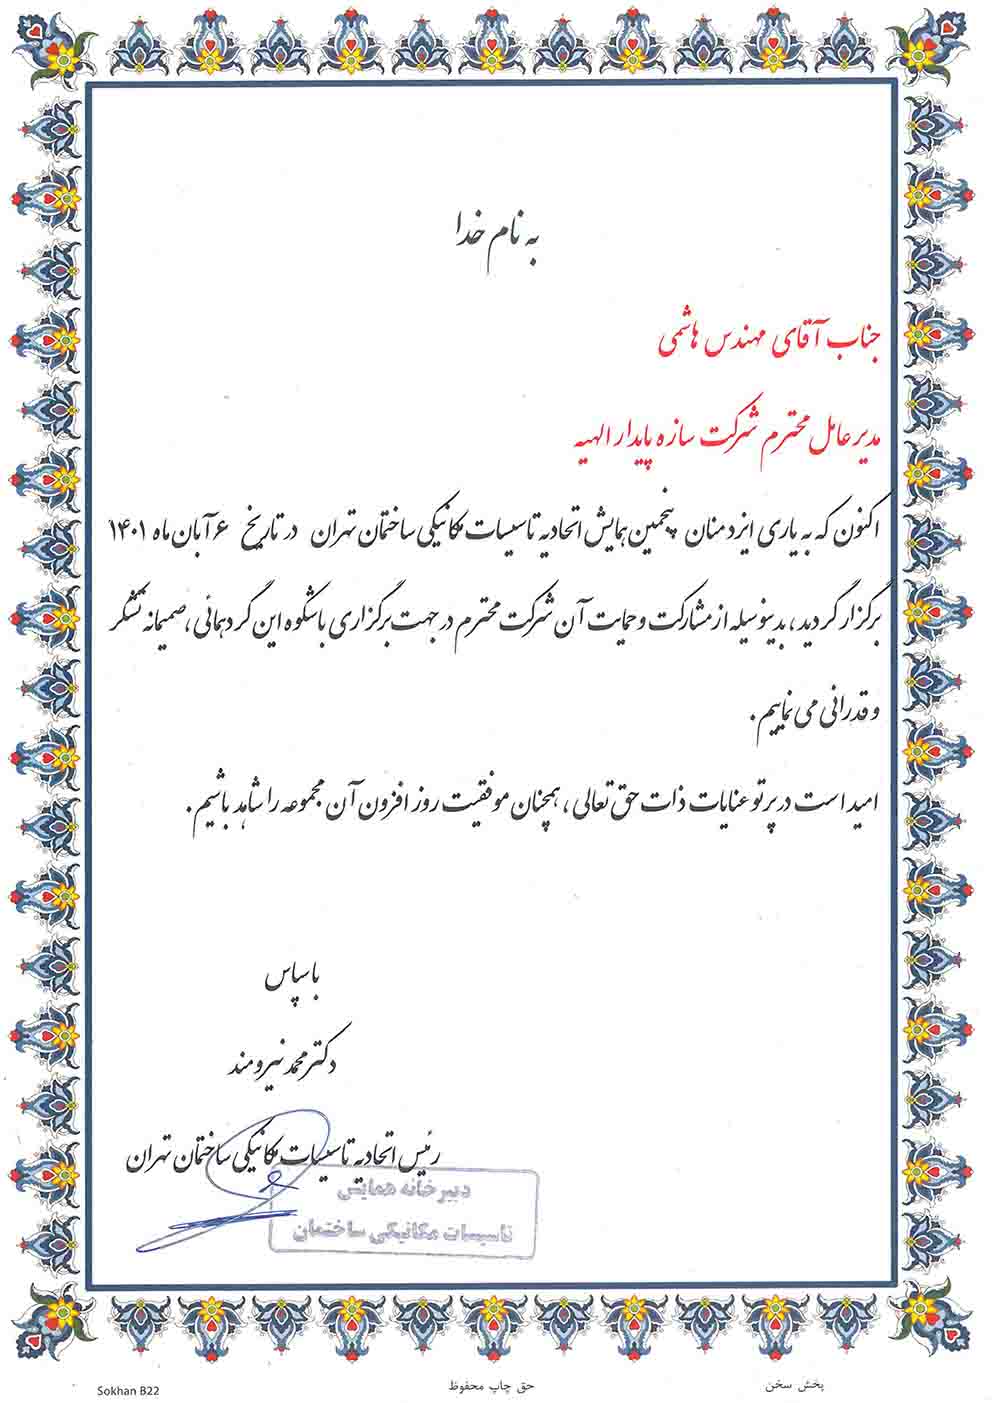 به نام خدا
جناب آقای مهندس هاشمی
مدیرعامل محترم شرکت سازه پایدار الهیه
اکنون که به یاری ایزد منان پنجمین همایش اتحادیه تاسیسات مکانیکی ساختمان تهران در تاریخ ۶ آبان ماه ۱۴۰۱
برگزار گردید، بدینوسیله از مشارکت و حمایت آن شرکت محترم در جهت برگزاری باشکوه این گردهمائی، صمیمانه تشکر
و قدرانی می نماییم.
امید است در پرتو عنایات ذات حق تعالی، همچنان موفقیت روز افزون آن مجموعه را شاهد باشیم.
با سپاس
دکتر محمد نیرومند
رئیس اتحادیه تاسیسات مکانیکی ساختمان تهران
دبیرخانه همایش
تاسیسات مکانیکی ساختمان
پخش سخن
حق چاپ محفوظ
Sokhan B22